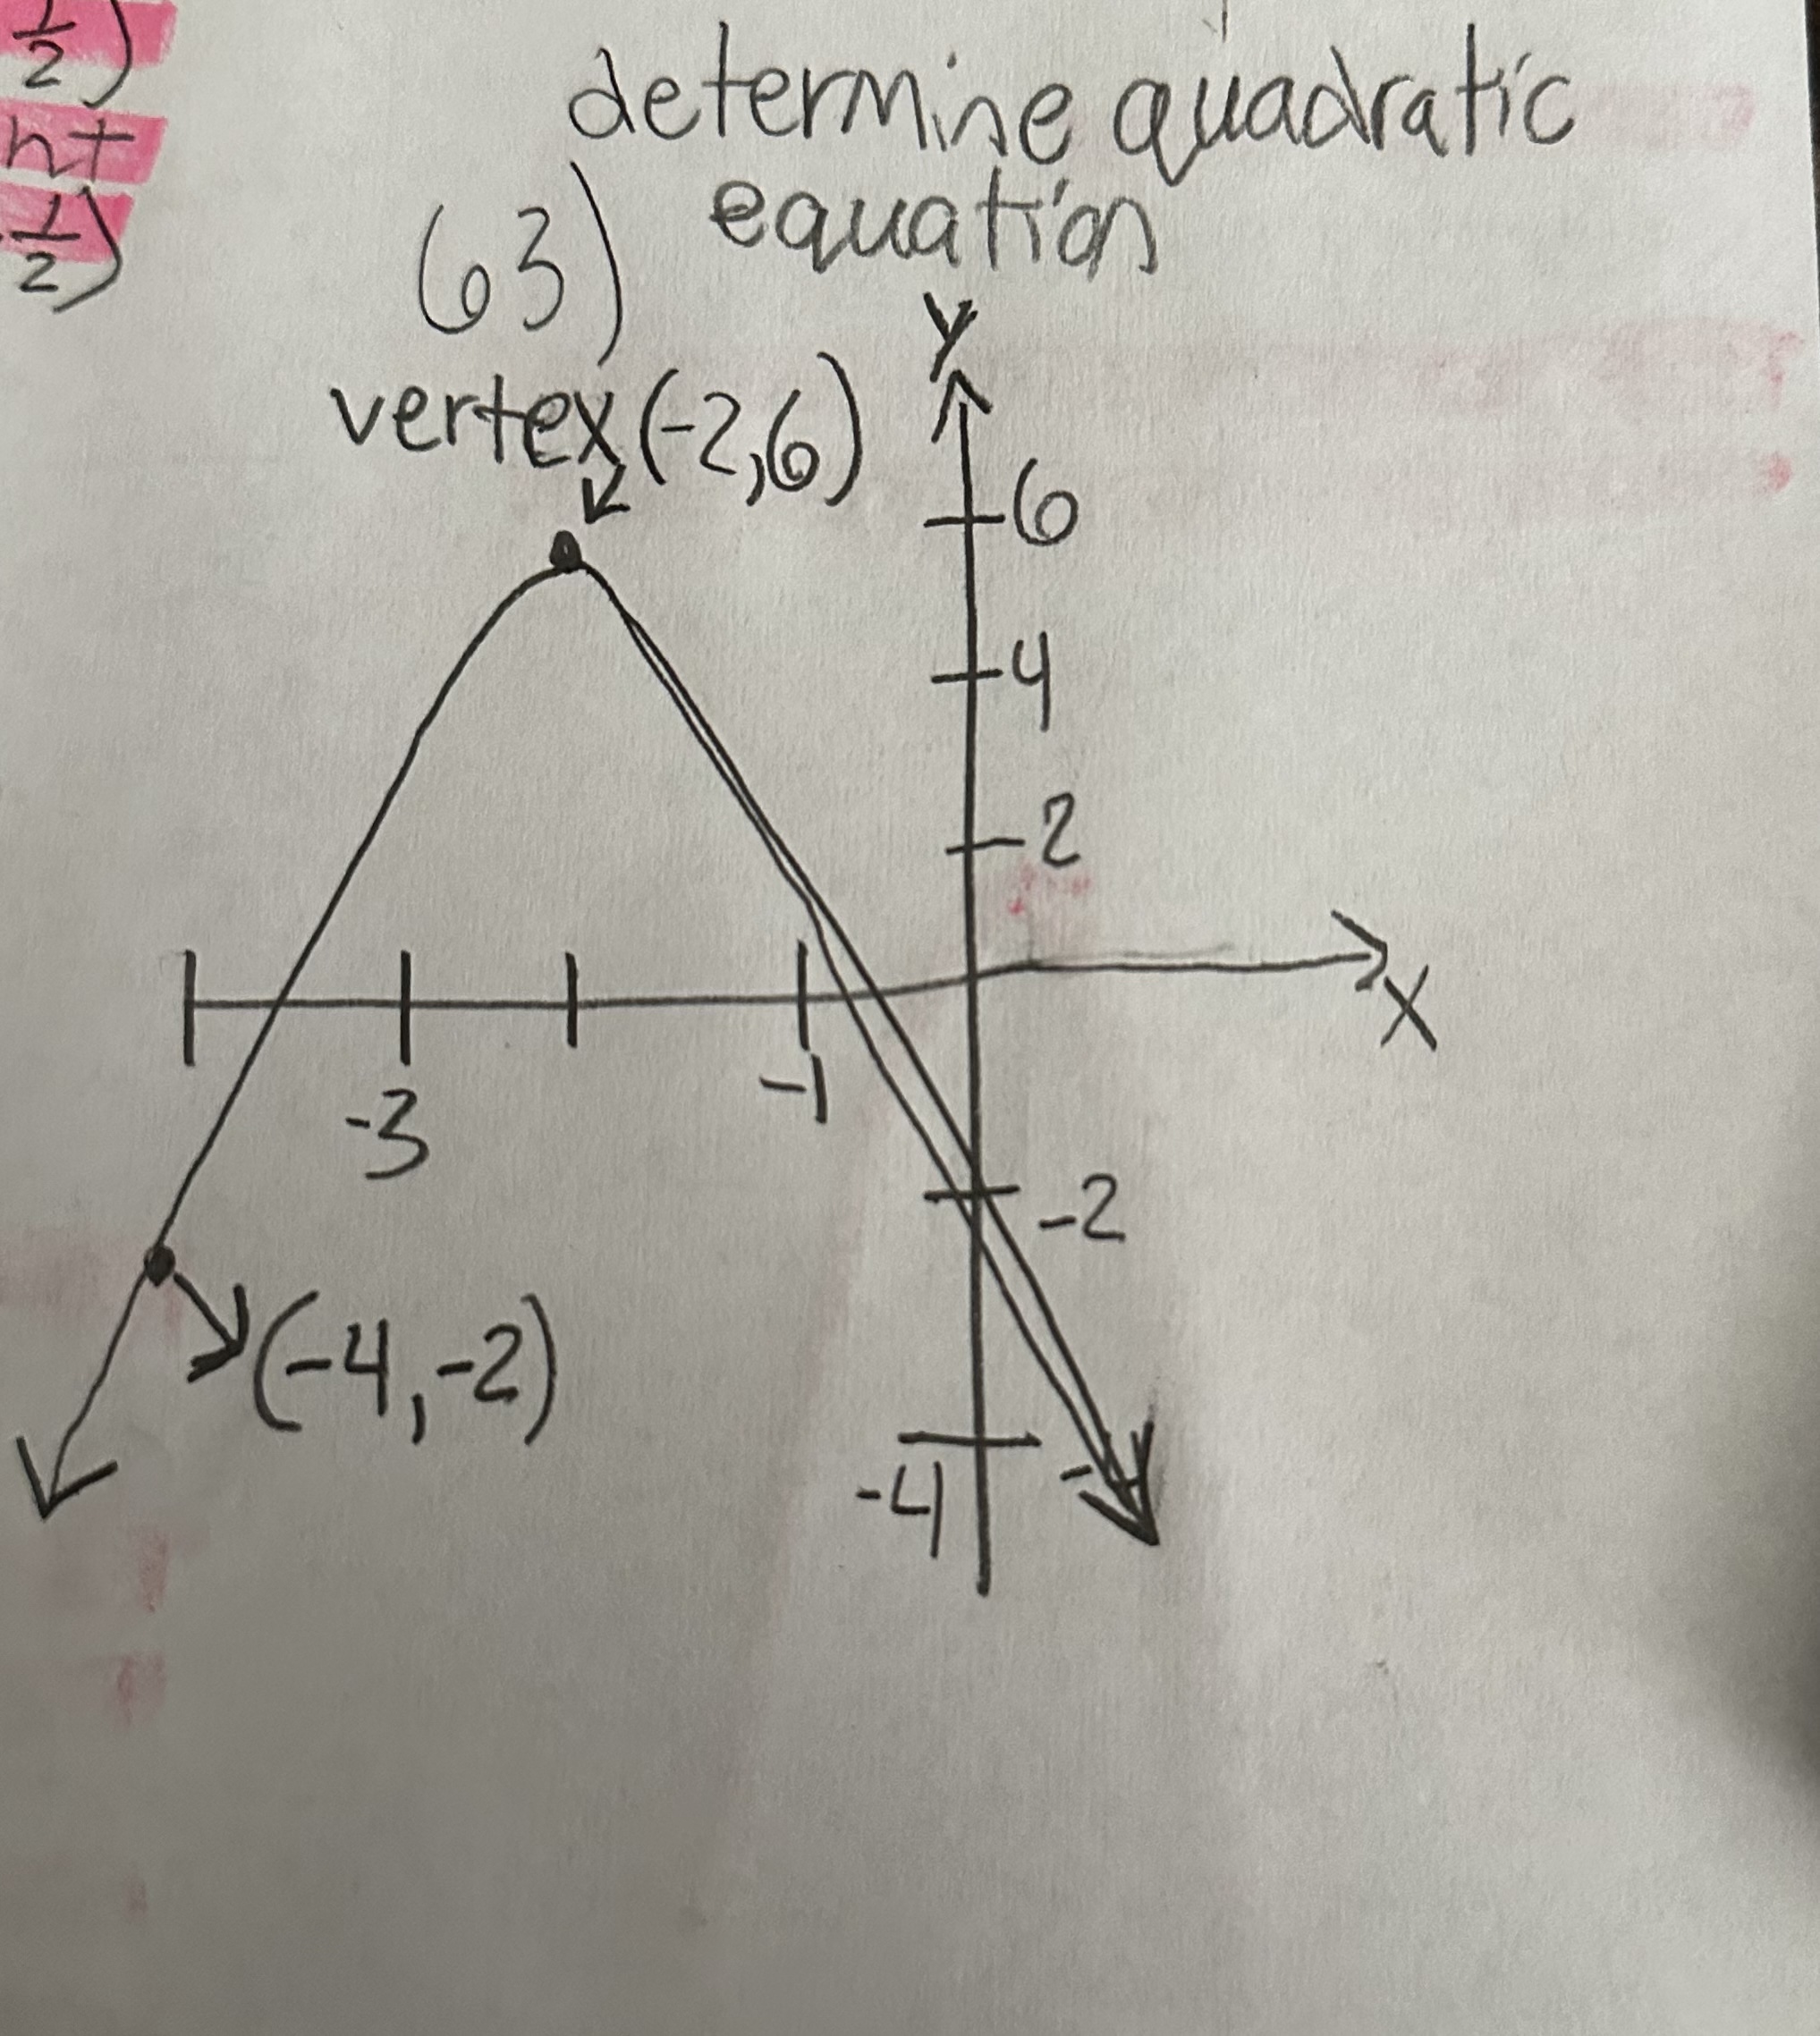 1/2)
nt
1/2)
determine quadratic
equation
63)
vertex (-2,6)
y
6
4
2
x
-3
-1
-2
(-4,-2)
-4